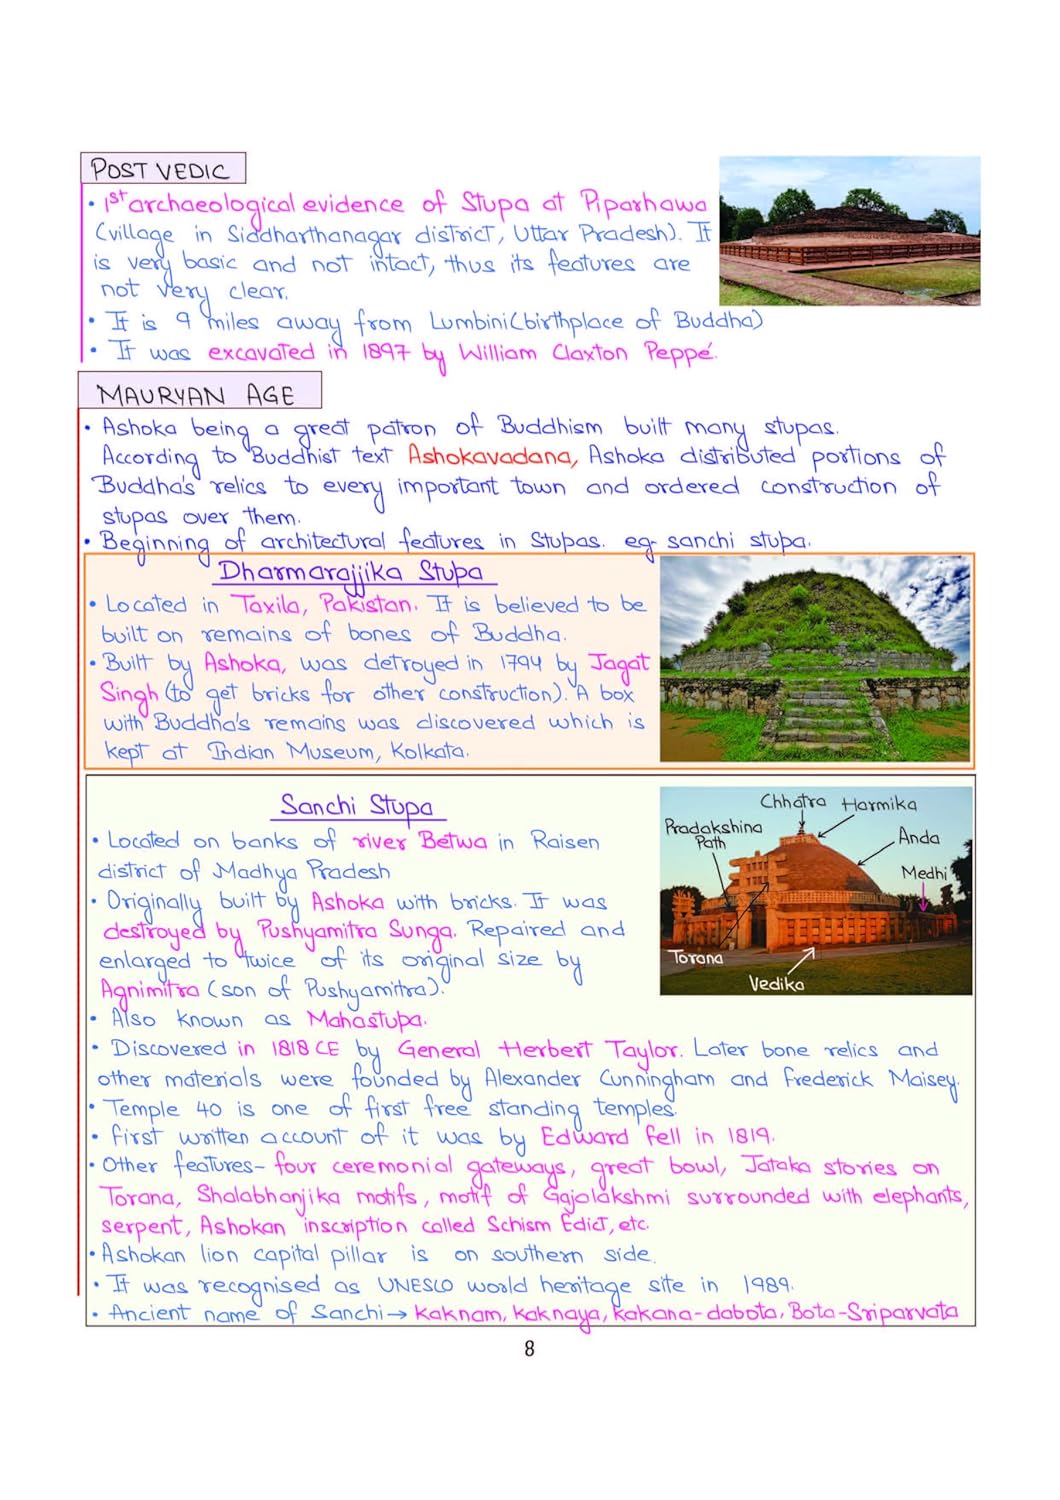 POST VEDIC
• 1st archaeological evidence of Stupa at Piparhawa
(village in Siddharthanagar district, Uttar Pradesh). It
is very basic and not intact, thus its features are
not very clear.
• It is 9 miles away from Lumbini (birthplace of Buddha)
• It was excavated in 1897 by William Claxton Peppé.
MAURYAN AGE
• Ashoka being a great patron of Buddhism built many stupas.
According to Buddhist text Ashokavadana, Ashoka distributed portions of
Buddha's relics to every important town and ordered construction of
stupas over them.
• Beginning of architectural features in Stupas. eg- sanchi stupa.
Dharmarajjika Stupa
• Located in Taxila, Pakistan. It is believed to be
built on remains of bones of Buddha.
• Built by Ashoka, was detroyed in 1794 by Jagat
Singh (to get bricks for other construction). A box
with Buddha's remains was discovered which is
kept at Indian Museum, Kolkata.
Sanchi Stupa
• Located on banks of river Betwa in Raisen
district of Madhya Pradesh
• Originally built by Ashoka with bricks. It was
destroyed by Pushyamitra Sunga. Repaired and
enlarged to twice of its original size by
Agnimitra (son of Pushyamitra).
• Also known as Mahastupa.
Chhatra Harmika
Pradakshina
Path
Anda
Medhi
Torana
Vedika
• Discovered in 1818 CE by General Herbert Taylor. Later bone relics and
other materials were founded by Alexander Cunningham and Frederick Maisey.
• Temple 40 is one of first free standing temples.
• First written account of it was by Edward Fell in 1819.
• Other features- four ceremonial gateways, great bowl, Jataka stories on
Torana, Shalabhanjika motifs, motif of Gajalakshmi surrounded with elephants,
serpent, Ashokan inscription called Schism Edict, etc.
• Ashokan lion capital pillar is on southern side.
• It was recognised as UNESCO world heritage site in 1989.
• Ancient name of Sanchi → Kaknam, Kaknaya, Kakana-dabota, Bota-Sriparvata
8